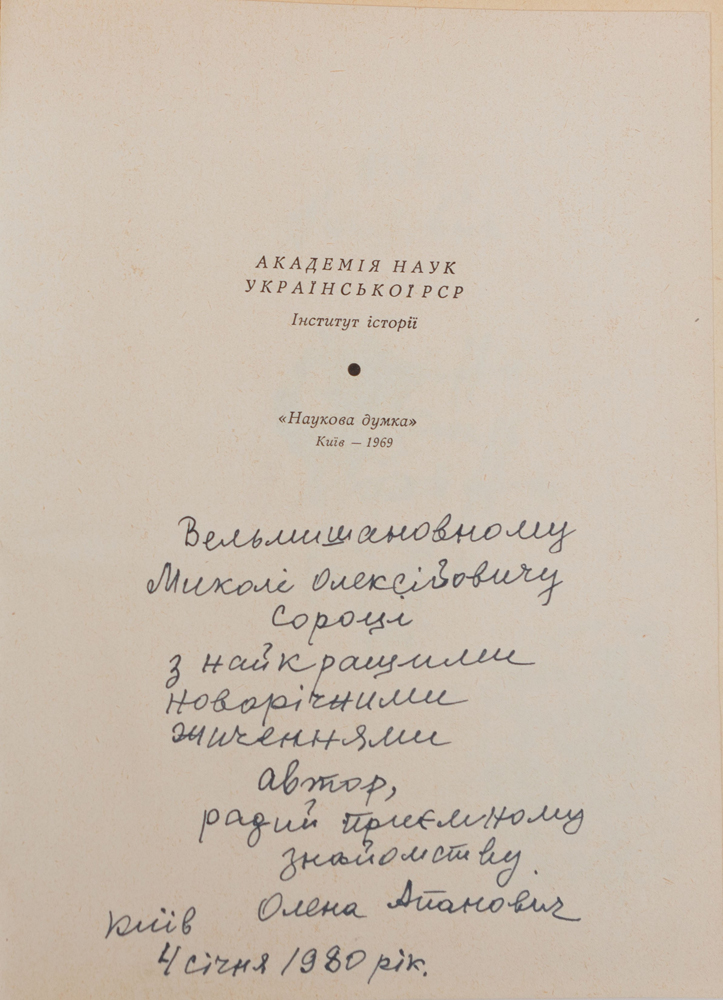 АКАДЕМІЯ НАУК
УКРАЇНСЬКОЇ РСР
Інститут історії
«Наукова думка»
Київ — 1969
Вельмишановному
Миколі Олексійовичу
Сороці
з найкращими
новорічними
зиченнями
автор,
радий приємному
знайомству.
Олена Апанович
Київ
4 січня 1980 рік.